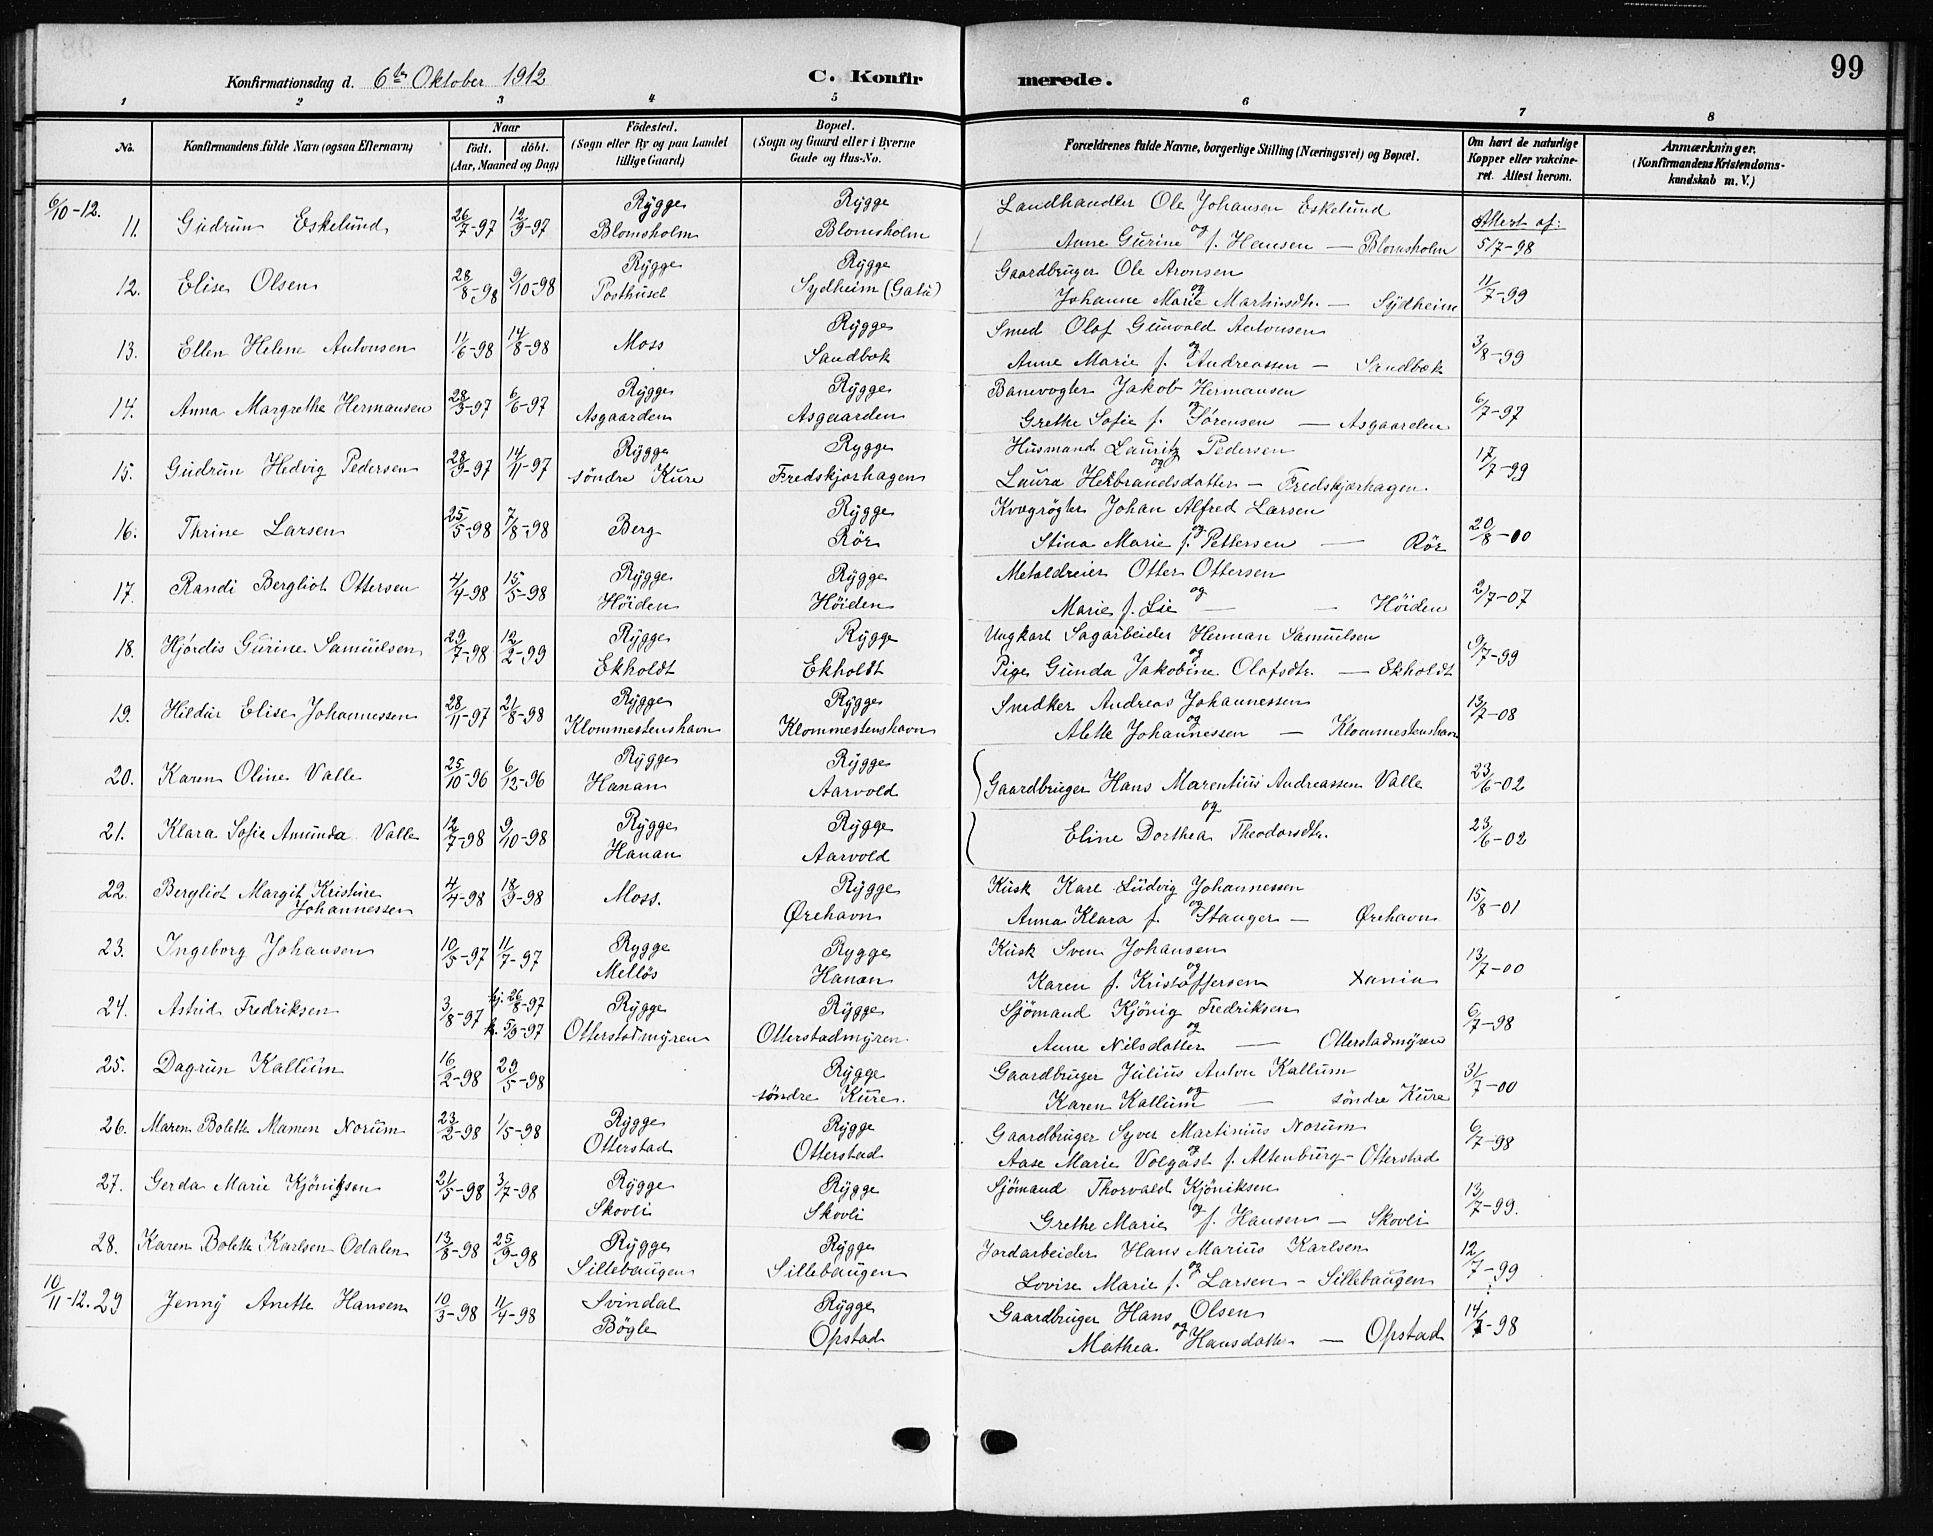 99
Konfirmationsdag d. 6te Oktober 1912
C. Konfirmerede.
1 2 3 4 5 6 7 8
No.
Konfirmandens fulde Navn (ogsaa Efternavn)
Naar
födt. döbt.
(Aar, Maaned og Dag)
Födested.
(Sogn eller By og paa Landet
tillige Gaard)
Bopæl.
(Sogn og Gaard eller i Byerne
Gade og Hus-No.
Forældrenes fulde Navne, borgerlige Stilling (Næringsvei) og Bopæl.
Om havt de naturlige
Kopper eller vakcine-
ret. Attest herom.
Anmærkninger.
(Konfirmandens Kristendoms-
kundskab m. V.)
6/10-12.
11. Gudrun Eskelund 26/7-97 12/9-97 Rygge Blomsholm Rygge Blomsholm Landhandler Ole Johansen Eskelund og
Anne Gurine f. Hansen — Blomsholm Attest af: 5/7-98
12. Elise Olsen 28/8-98 9/10-98 Rygge Posthuset Rygge Sydheim (Gata) Gaardbruger Ole Aronsen og
Johanne Marie Martinsdtr. — Sydheim 11/7-99
13. Ellen Helene Antonsen 11/6-98 14/8-98 Moss Rygge Sandbæk Smed Olaf Gunvald Antonsen og
Anne Marie f. Andreassen — Sandbæk 3/8-99
14. Anna Margrethe Hermansen 28/3-97 6/6-97 Rygge Asgaarden Rygge Asgaarden Banevogter Jakob Hermansen og
Grethe Sofie f. Sørensen — Asgaarden 6/7-97
15. Gudrun Hedvig Pedersen 28/9-97 14/11-97 Rygge søndre Kure Rygge Fredskjærhagen Husmand Lauritz Pedersen og
Laura Herbrandsdatter — Fredskjærhagen 17/7-99
16. Thrine Larsen 25/5-98 7/8-98 Berg Rygge Rör Kvægrøgter Johan Alfred Larsen og
Stina Marie f. Pettersen — Rör 20/8-00
17. Randi Bergliot Ottersen 4/4-98 15/5-98 Rygge Höiden Rygge Höiden Metaldreier Otter Ottersen og
Marie f. Lie — — Höiden 2/7-07
18. Hjørdis Gurine Samuelsen 29/7-98 12/2-99 Rygge Ekholdt Rygge Ekholdt Ungkarl Sagarbeider Herman Samuelsen og
Pige Gunda Jakobine Olafsdtr. — Ekholdt 9/7-99
19. Hildur Elise Johannessen 28/11-97 21/8-98 Rygge Klommestenshavn Rygge Klommestenshavn Snedker Andreas Johannessen og
Alette Johannessen — Klommestenshavn 13/7-08
20. Karen Oline Valle 25/10-96 6/12-96 Rygge Hanan Rygge Aarvold Gaardbruger Hans Marentius Andreassen Valle 23/6-02
og
21. Klara Sofie Amunda Valle 12/7-98 9/10-98 Rygge Hanan Rygge Aarvold Eline Dorthea Theodorsdtr. 23/6-02
22. Bergliot Margit Kristine Johannessen 4/4-98 18/9-98 Moss. Rygge Ørehavn Kusk Karl Ludvig Johannessen og
Anna Klara f. Stanger — Ørehavn 15/8-01
23. Ingeborg Johansen 10/5-97 11/7-97 Rygge Mellös Rygge Hanan Kusk Sven Johansen og
Karen f. Kristoffersen Xania 13/7-00
24. Astrid Fredriksen 3/8-97 hj. 26/8-97 k. 5/9-97 Rygge Otterstadmyren Rygge Otterstadmyren Sjömand Kjönig Fredriksen og
Anne Nilsdatter — Otterstadmyren 6/7-98
25. Dagrun Kallum 16/2-98 29/5-98 Rygge søndre Kure. Gaardbruger Julius Anton Kallum og
Karen Kallum — søndre Kure 31/7-00
26. Maren Bolette Mamen Norum 23/2-98 1/5-98 Rygge Otterstad Rygge Otterstad Gaardbruger Syver Martinius Norum og
Aase Marie Volgast f. Altenburg - Otterstad 6/7-98
27. Gerda Marie Kjöniksen 21/5-98 3/7-98 Rygge Skovli Rygge Skovli Sjömand Thorvald Kjöniksen og
Grethe Marie f. Hansen — Skovli 13/7-99.
28. Karen Bolette Karlsen Odalen 13/8-98 25/9-98 Rygge Sillebaugen Rygge Sillebaugen Jordarbeider Hans Marius Karlsen og
Lovise Marie f. Larsen - Sillebaugen 12/7-99
10/11-12. 29 Jenny Anette Hansen 10/3-98 11/4-98 Svindal Bögle Rygge Opstad Gaardbruger Hans Olsen og
Mathea Hansdatter — Opstad 14/7-98